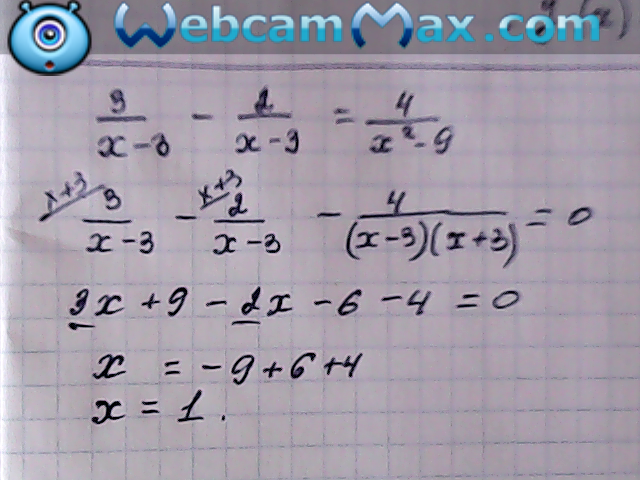 WebcamMax.com
3/(x-3) - 2/(x-3) = 4/(x²-9)
x+3 3/(x-3) - x+3 2/(x-3) - 4/((x-3)(x+3)) = 0
3x + 9 - 2x - 6 - 4 = 0
x = -9+6+4
x = 1.